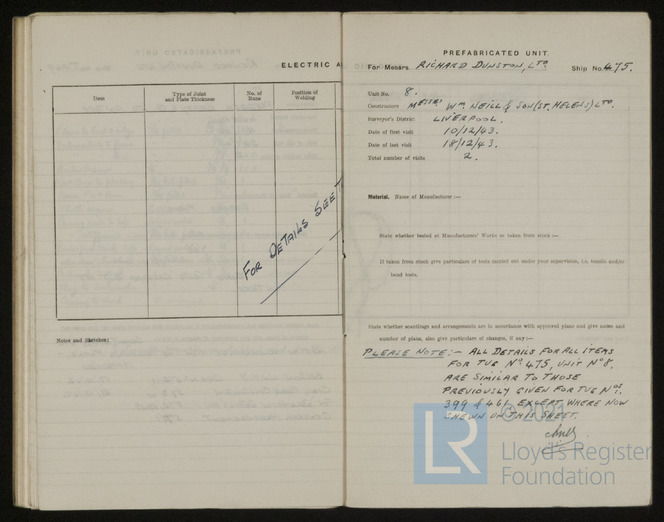 ELECTRIC A
Item
Type of Joint
and Plate Thickness
No. of
Runs
Position of
Welding
FOR DETAILS SEE
Notes and Sketches:
PREFABRICATED UNIT.
For Messrs. RICHARD DUNSTON, LTD Ship No. 475.
Unit No. 8.
Constructors MESSRS WM. NEILL & SON (ST. HELENS) LTD.
Surveyor's District LIVERPOOL.
Date of first visit 10/12/43.
Date of last visit 18/12/43.
Total number of visits 2.
Material. Name of Manufacturer:—
State whether tested at Manufacturers' Works or taken from stock:—
If taken from stock give particulars of tests carried out under your supervision, i.e. tensile and/or
bend tests.
State whether scantlings and arrangements are in accordance with approved plans and give names and
number of plans, also give particulars of changes, if any:—
PLEASE NOTE:- ALL DETAILS FOR ALL ITEMS
FOR TUG NO. 475, UNIT NO 8,
ARE SIMILAR TO THOSE
PREVIOUSLY GIVEN FOR TUG NOS.
399 & 461 EXCEPT WHERE NOW
SHEWN ON THIS SHEET.
© 2021
LR
Lloyd's Register
Foundation